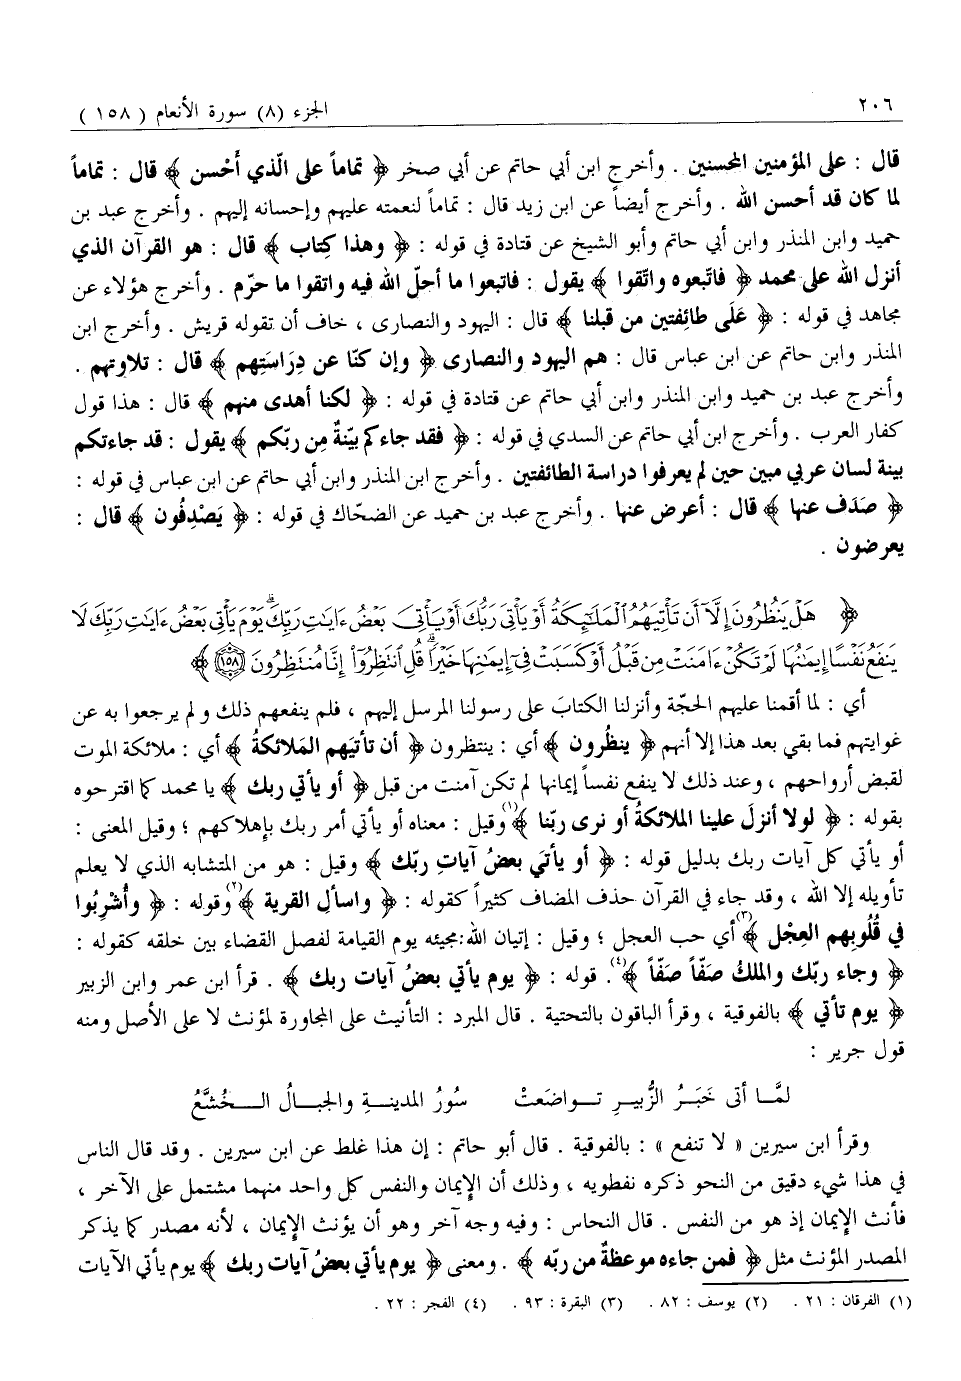 ٢٠٦
الجزء (٨) سورة الأنعام ( ١٥٨ )
قال : على المؤمنين المحسنين . وأخرج ابن أبي حاتم عن أبي صخر ﴿ تماماً على الّذي أَحْسن ﴾ قال : تماماً
لما كان قد أحسن الله . وأخرج أيضاً عن ابن زيد قال : تماماً لنعمته عليهم وإحسانه إليهم . وأخرج عبد بن
حميد وابن المنذر وابن أبي حاتم وأبو الشيخ عن قتادة في قوله : ﴿ وهذا كِتاب ﴾ قال : هو القرآن الذي
أنزل الله على محمد ﴿ فاتّبعوه واتّقوا ﴾ يقول : فاتبعوا ما أحلّ الله فيه واتقوا ما حرّم . وأخرج هؤلاء عن
مجاهد في قوله : ﴿ عَلَى طائفتين من قبلنا ﴾ قال : اليهود والنصارى ، خاف أن تقوله قريش . وأخرج ابن
المنذر وابن حاتم عن ابن عباس قال : هم اليهود والنصارى ﴿ وإن كنّا عن دِرَاستِهم ﴾ قال : تلاوتهم .
وأخرج عبد بن حميد وابن المنذر وابن أبي حاتم عن قتادة في قوله : ﴿ لكنا أهدى منهم ﴾ قال : هذا قول
كفار العرب . وأخرج ابن أبي حاتم عن السدي في قوله : ﴿ فقد جاءكم بيّنةٌ مِن ربّكم ﴾ يقول : قد جاءتكم
بينة لسان عربي مبين حين لم يعرفوا دراسة الطائفتين . وأخرج ابن المنذر وابن أبي حاتم عن ابن عباس في قوله :
﴿ صَدَف عنها ﴾ قال : أعرض عنها . وأخرج عبد بن حميد عن الضحّاك في قوله : ﴿ يَصْدِفُون ﴾ قال :
يعرضون .
﴿ هَلْ يَنظُرُونَ إِلَّآ أَن تَأْتِيَهُمُ ٱلْمَلَٰٓئِكَةُ أَوْ يَأْتِىَ رَبُّكَ أَوْ يَأْتِىَ بَعْضُ ءَايَٰتِ رَبِّكَ ۗ يَوْمَ يَأْتِى بَعْضُ ءَايَٰتِ رَبِّكَ لَا
يَنفَعُ نَفْسًا إِيمَٰنُهَا لَمْ تَكُنْ ءَامَنَتْ مِن قَبْلُ أَوْ كَسَبَتْ فِىٓ إِيمَٰنِهَا خَيْرًا ۗ قُلِ ٱنتَظِرُوٓا۟ إِنَّا مُنتَظِرُونَ ١٥٨ ﴾
أي : لما أقمنا عليهم الحجّة وأنزلنا الكتابَ على رسولنا المرسل إليهم ، فلم ينفعهم ذلك ولم يرجعوا به عن
غوايتهم فما بقي بعد هذا إلا أنهم ﴿ ينظُرون ﴾ أي : ينتظرون ﴿ أن تأتيَهم المَلائكةُ ﴾ أي : ملائكة الموت
لقبض أرواحهم ، وعند ذلك لا ينفع نفساً إيمانها لم تكن آمنت من قبل ﴿ أو يأتي ربك ﴾ يا محمد كما اقترحوه
بقوله : ﴿ لولا أنزلَ علينا الملائكةُ أو نرى ربّنا ﴾(١) وقيل : معناه أو يأتي أمر ربك بإهلاكهم ؛ وقيل المعنى :
أو يأتي كل آيات ربك بدليل قوله : ﴿ أو يأتيَ بعضُ آياتِ ربّك ﴾ وقيل : هو من المتشابه الذي لا يعلم
تأويله إلا الله ، وقد جاء في القرآن حذف المضاف كثيراً كقوله : ﴿ واسألِ القرية ﴾(٢) وقوله : ﴿ وأُشْرِبُوا
في قُلُوبِهم العِجْل ﴾(٣) أي حب العجل ؛ وقيل : إتيان الله:مجيئه يوم القيامة لفصل القضاء بين خلقه كقوله :
﴿ وجاء ربّك والملكُ صفّاً صفّاً ﴾(٤). قوله : ﴿ يوم يأتي بعضُ آيات ربك ﴾ . قرأ ابن عمر وابن الزبير
﴿ يوم تأتي ﴾ بالفوقية ، وقرأ الباقون بالتحتية . قال المبرد : التأنيث على المجاورة لمؤنث لا على الأصل ومنه
قول جرير :
لمَّـا أتى خَبَـرُ الزُّبيـرِ تـواضعَتْ سُورُ المدينـةِ والجبـالُ الـخُشَّعُ
وقرأ ابن سيرين « لا تنفع » : بالفوقية . قال أبو حاتم : إن هذا غلط عن ابن سيرين . وقد قال الناس
في هذا شيء دقيق من النحو ذكره نفطويه ، وذلك أن الإيمان والنفس كل واحد منهما مشتمل على الآخر ،
فأنث الإيمان إذ هو من النفس . قال النحاس : وفيه وجه آخر وهو أن يؤنث الإيمان ، لأنه مصدر كما يذكر
المصدر المؤنث مثل ﴿ فمن جاءه موعظةٌ من ربّه ﴾ . ومعنى ﴿ يوم يأتي بعضُ آيات ربك ﴾ يوم يأتي الآيات
(١) الفرقان : ٢١ . (٢) يوسف : ٨٢ . (٣) البقرة : ٩٣ . (٤) الفجر : ٢٢ .